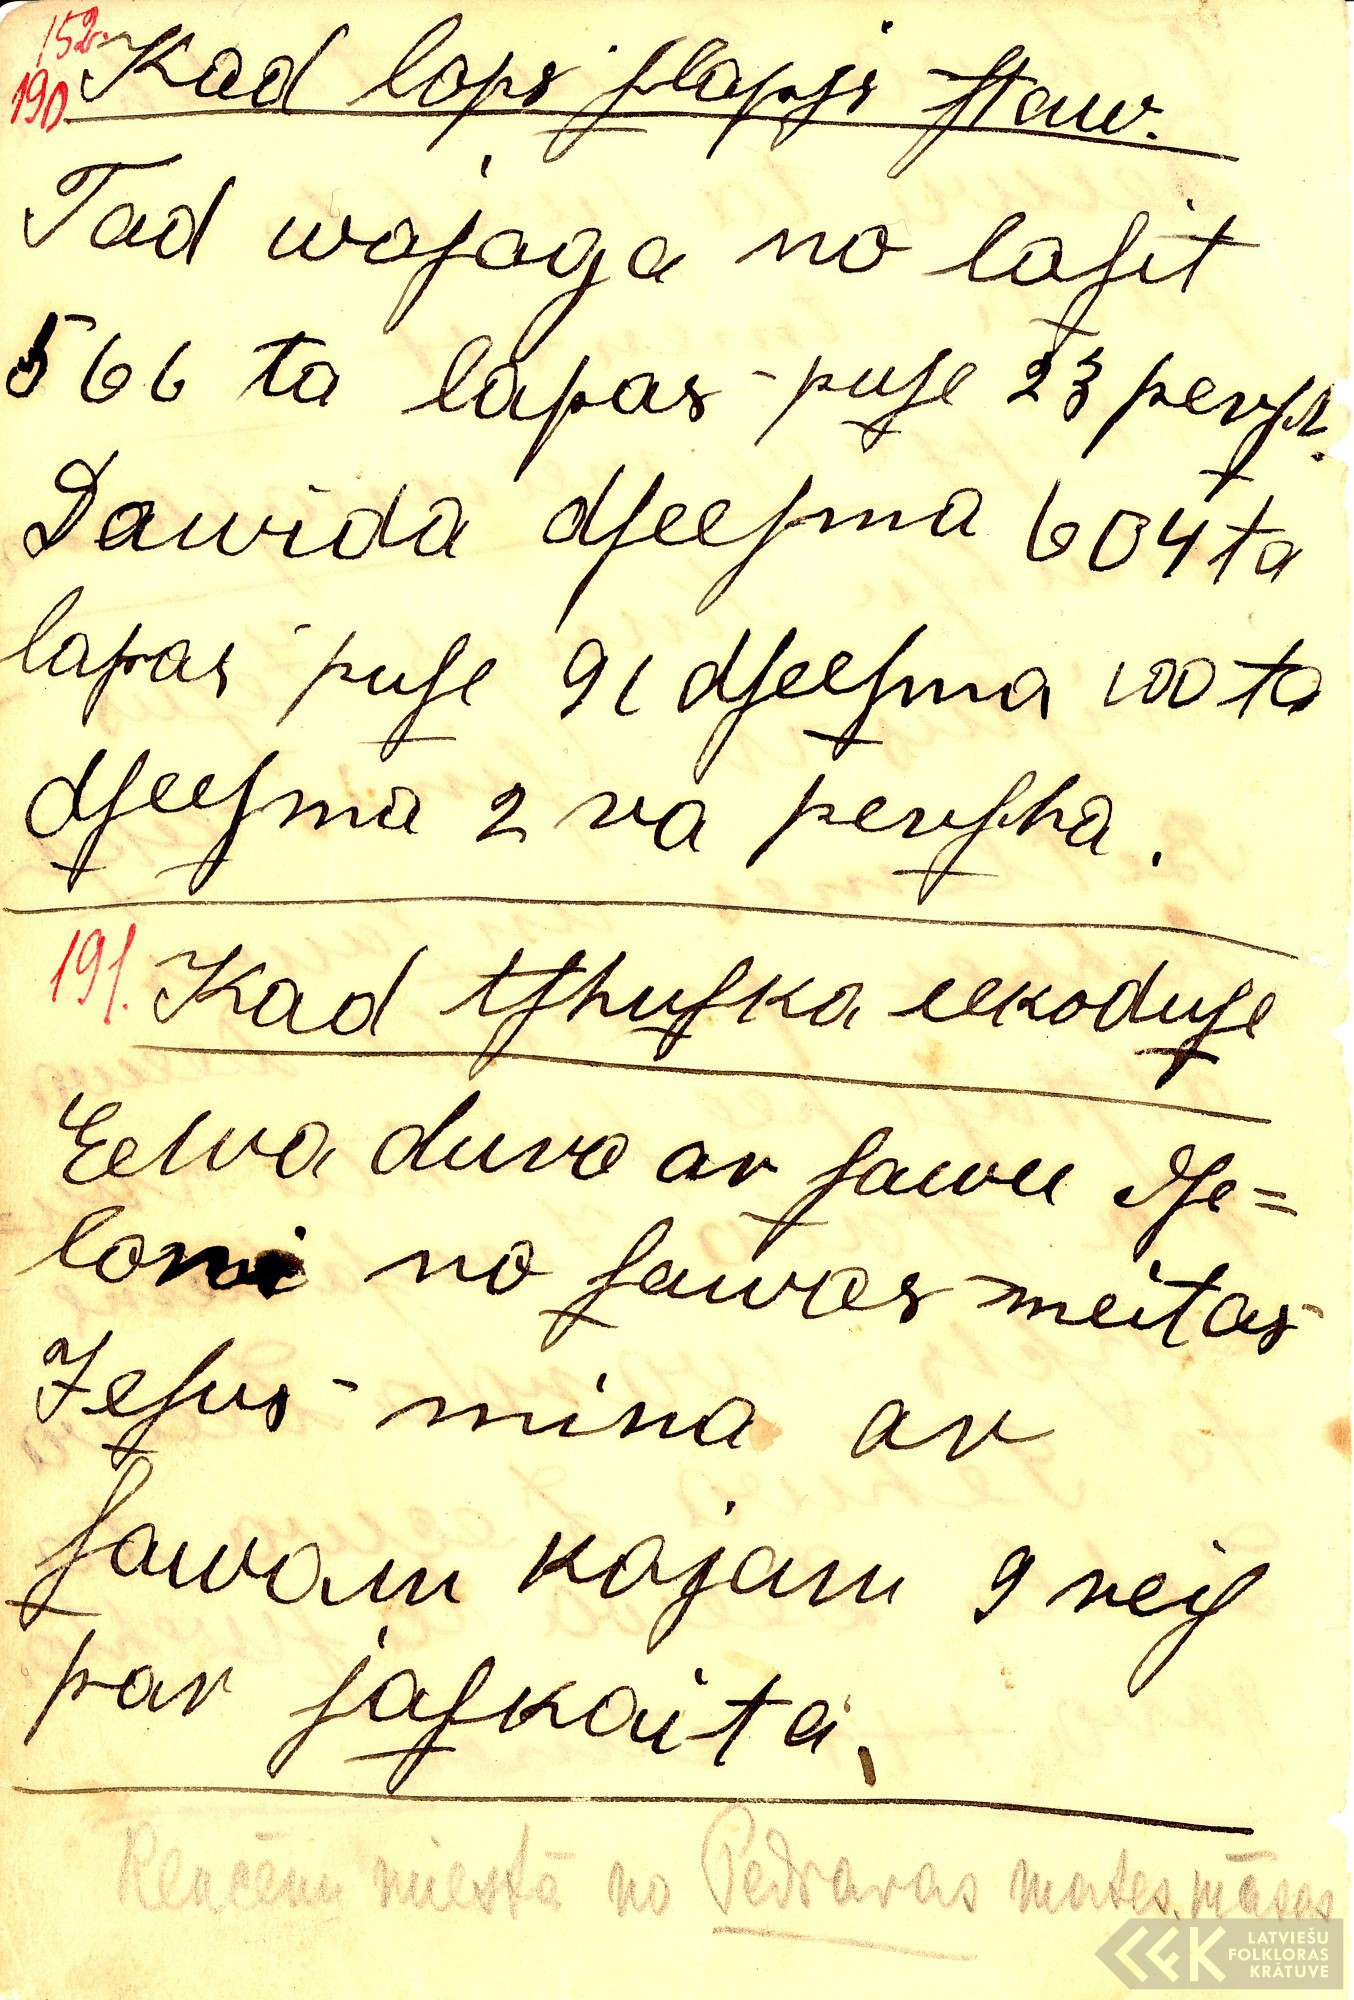 152.
190 Kad lops ſlapjs ſtaw.
Tad wajaga no laſit
566 ta lapas-puſe 23 perſch.
Dawida dſeeſma 604 ta
lapas puſe 91 dſeeſma 100 ta
dſeeſma 2 ra perſha.
191. Kad tſhuſka eekoduſe
Eewa dura ar ſawu dſe=
loni no ſawas meitas
Jeſus mina ar
ſawam kajam 9 reiſ
par jaſkaita.
Rencēnu miestā no Pedraras mates māsas
LATVIEŠU
FOLKLORAS
KRĀTUVE